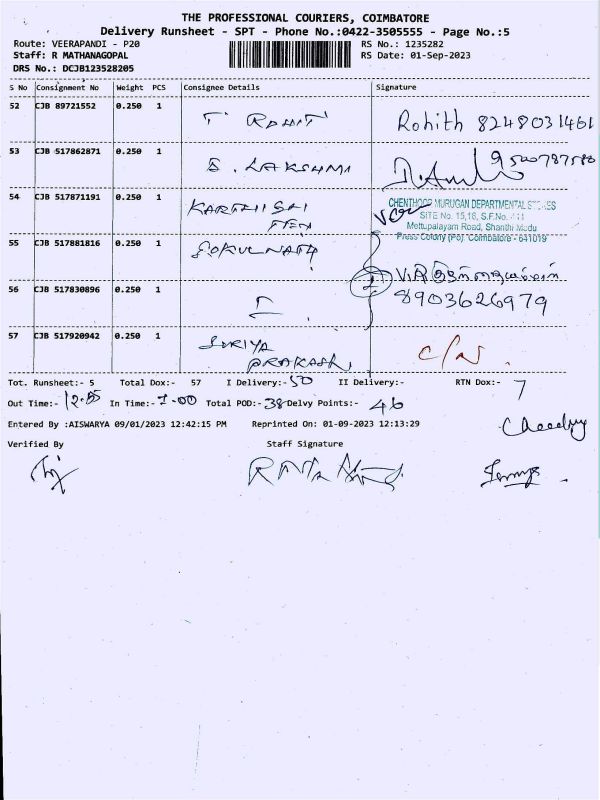 THE PROFESSIONAL COURIERS, COIMBATORE
Delivery Runsheet - SPT - Phone No.:0422-3505555 - Page No.:5
Route: VEERAPANDI - P20 RS No.: 1235282
Staff: R MATHANAGOPAL RS Date: 01-Sep-2023
DRS No.: DCJB123528205
S No Consignment No Weight PCS Consignee Details Signature
52 CJB 89721552 0.250 1 T ROHIT Rohith 8248031461
53 CJB 517862871 0.250 1 S. LAKSHMI
54 CJB 517871191 0.250 1 KARTHI SAI
CHENTHOOR MURUGAN DEPARTMENTAL STORES
SITE No. 15,16, S.F.No.
Mettupalayam Road, Shanthi Medu
Press Colony (Po). Coimbatore - 641019
55 CJB 517881816 0.250 1 GOKULNATH
56 CJB 517830896 0.250 1 8903626979
57 CJB 517920942 0.250 1 SURIYA
PRAKASH
Tot. Runsheet:- 5 Total Dox:- 57 I Delivery:- 50 II Delivery:- RTN Dox:- 7
Out Time:- 12.05 In Time:- 7-00 Total POD:- 38 Delvy Points:- 46
Entered By :AISWARYA 09/01/2023 12:42:15 PM Reprinted On: 01-09-2023 12:13:29
Verified By Staff Signature